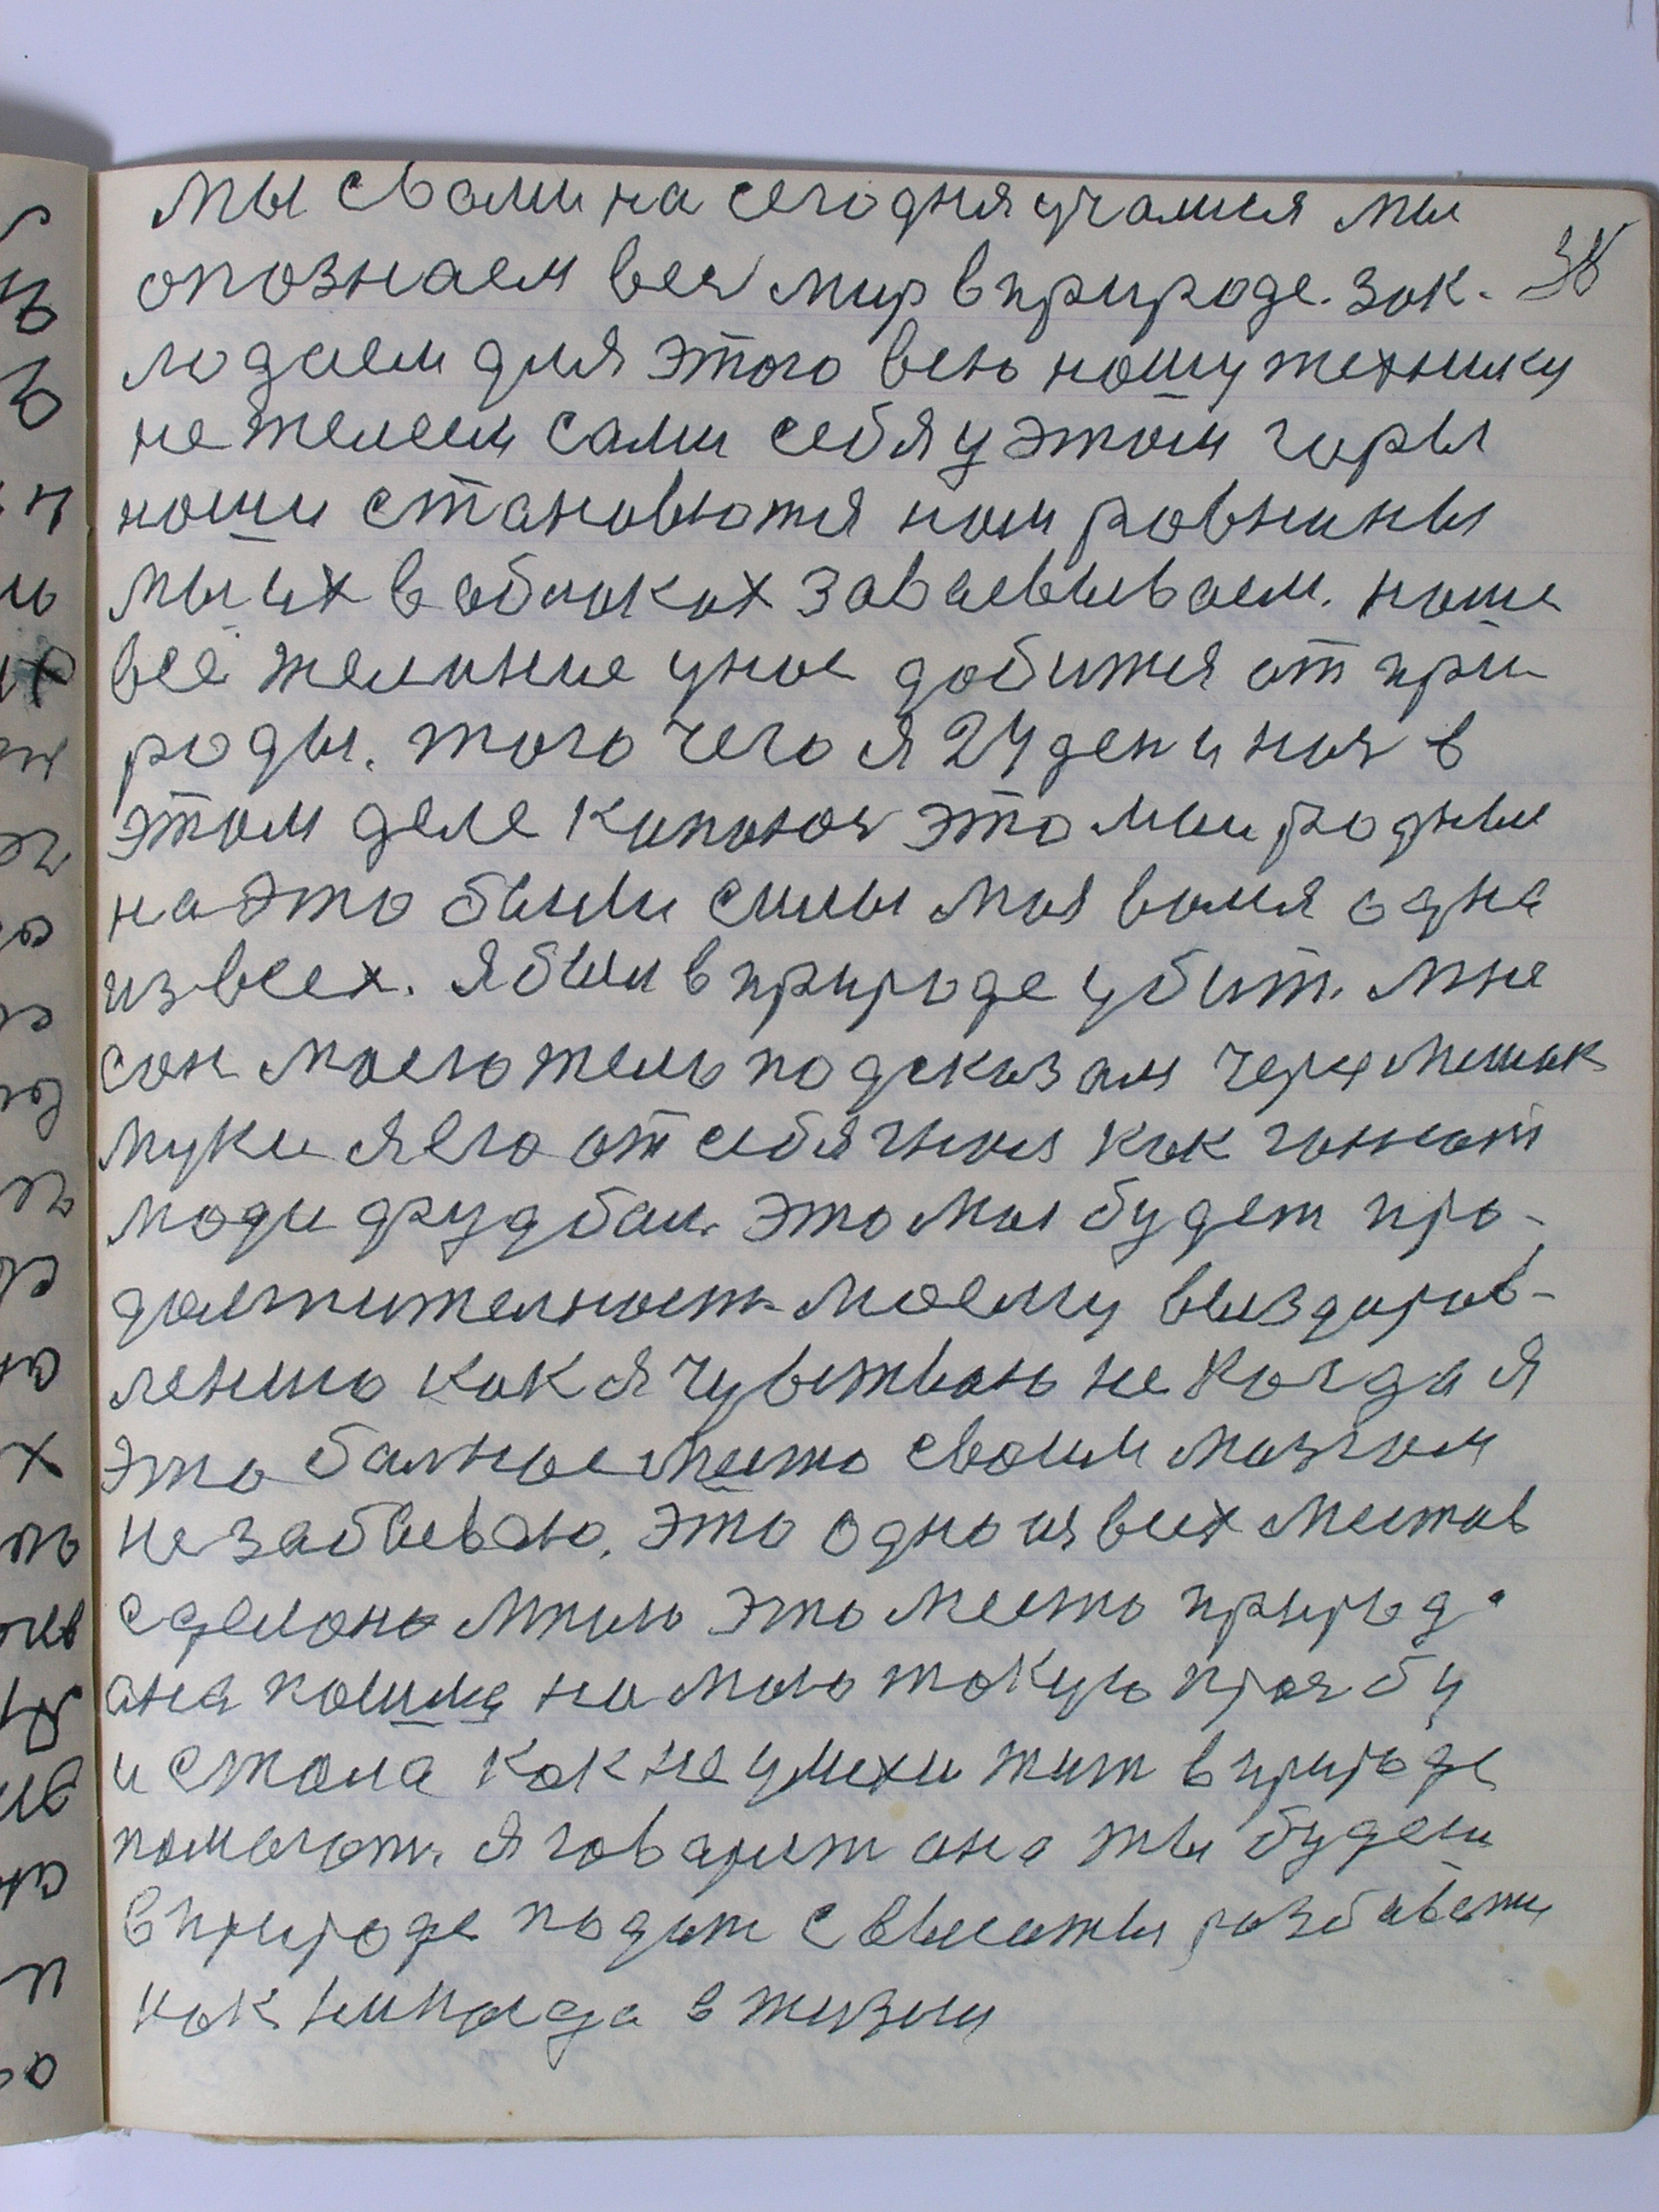 мы свами на сегодня учамися мы
опознаем вес мир в природе. зак- 38
лодаем для этого всю нашу технику
не желеем сами себя у этом горы
наши становютя нам ровнины
мы их в облаках заваевываем. наше
всё желание унас добитя от при-
роды. того чего я 24 ден и ноч в
этом деле капаюсь это мои родные
на это были силы моя воля одна
из всех. я был в природе убит. мне
сон моего тело подсказал через мешок
муки я его от себя гнал как гоняют
люди друдбаи. это мол будет про-
должителность моему выздоров-
лению как я чувствую не когда я
это балное место своим мозгом
не забываю. это одно из всех местов
сделоно мною это место природа
она пошла на мою такую прозбу
и стала как неумехи жит в природе
помогат. я говарит она ты будеш
в природе подат с высоты разбавети
как никагда в жизни